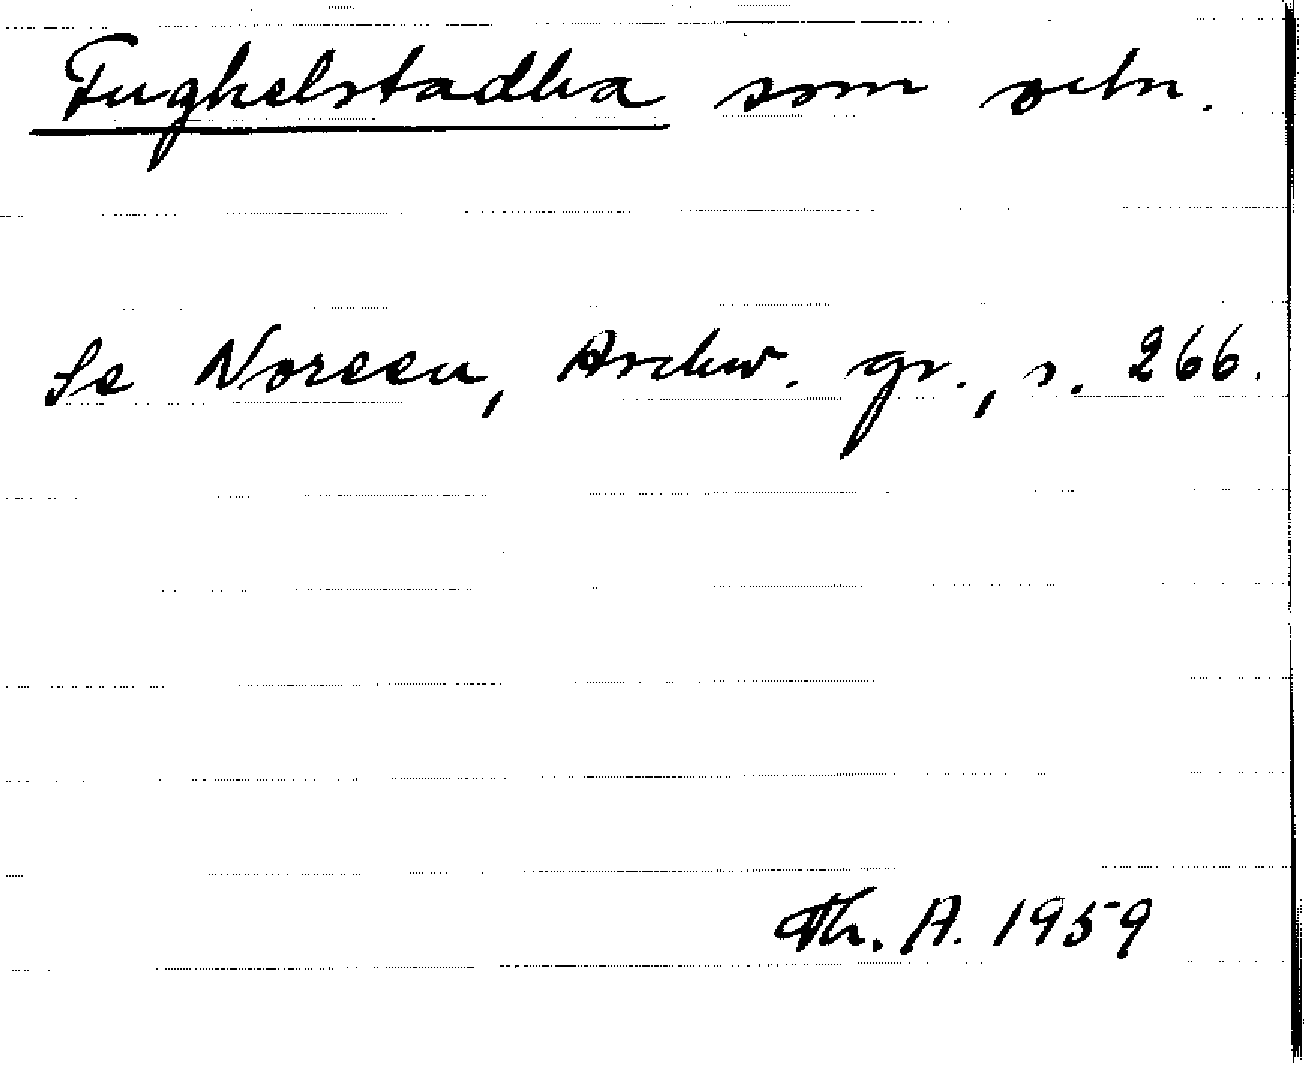 Fughelstadha som ortn.
Se Noreen, Aschw. gr., s. 266.
Th. A. 1959